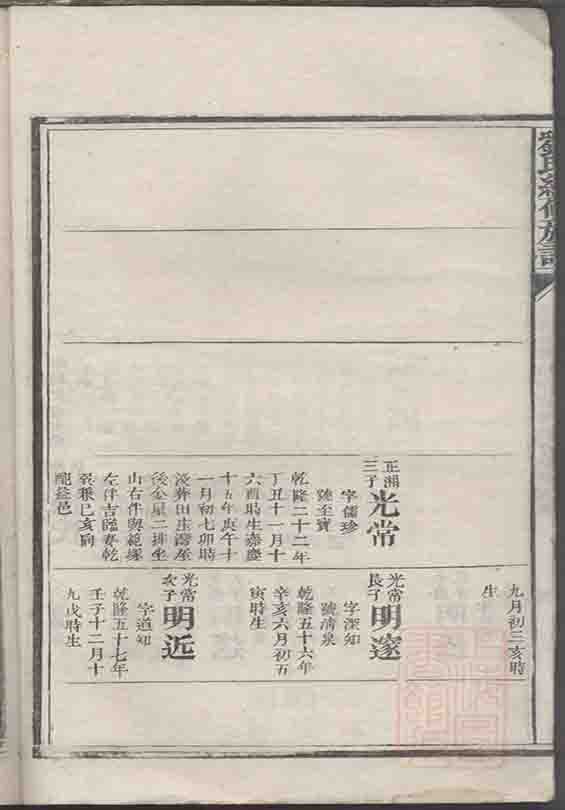 氏續修族譜
正湖
三子
光常
字儒珍
號至寶
乾隆二十二年
丁丑十一月十
六酉時生嘉慶
十五年庚午十
一月初七卯時
沒葬田庄灣屋
後金星二排坐
山右伴與範塚
左伴吉臨妻乾
巽兼巳亥向
配益邑
九月初三亥時
生
光常
長子
明邃
字深知
號清泉
乾隆五十六年
辛亥六月初五
寅時生
光常
次子
明近
字道知
乾隆五十七年
壬子十二月十
九戌時生